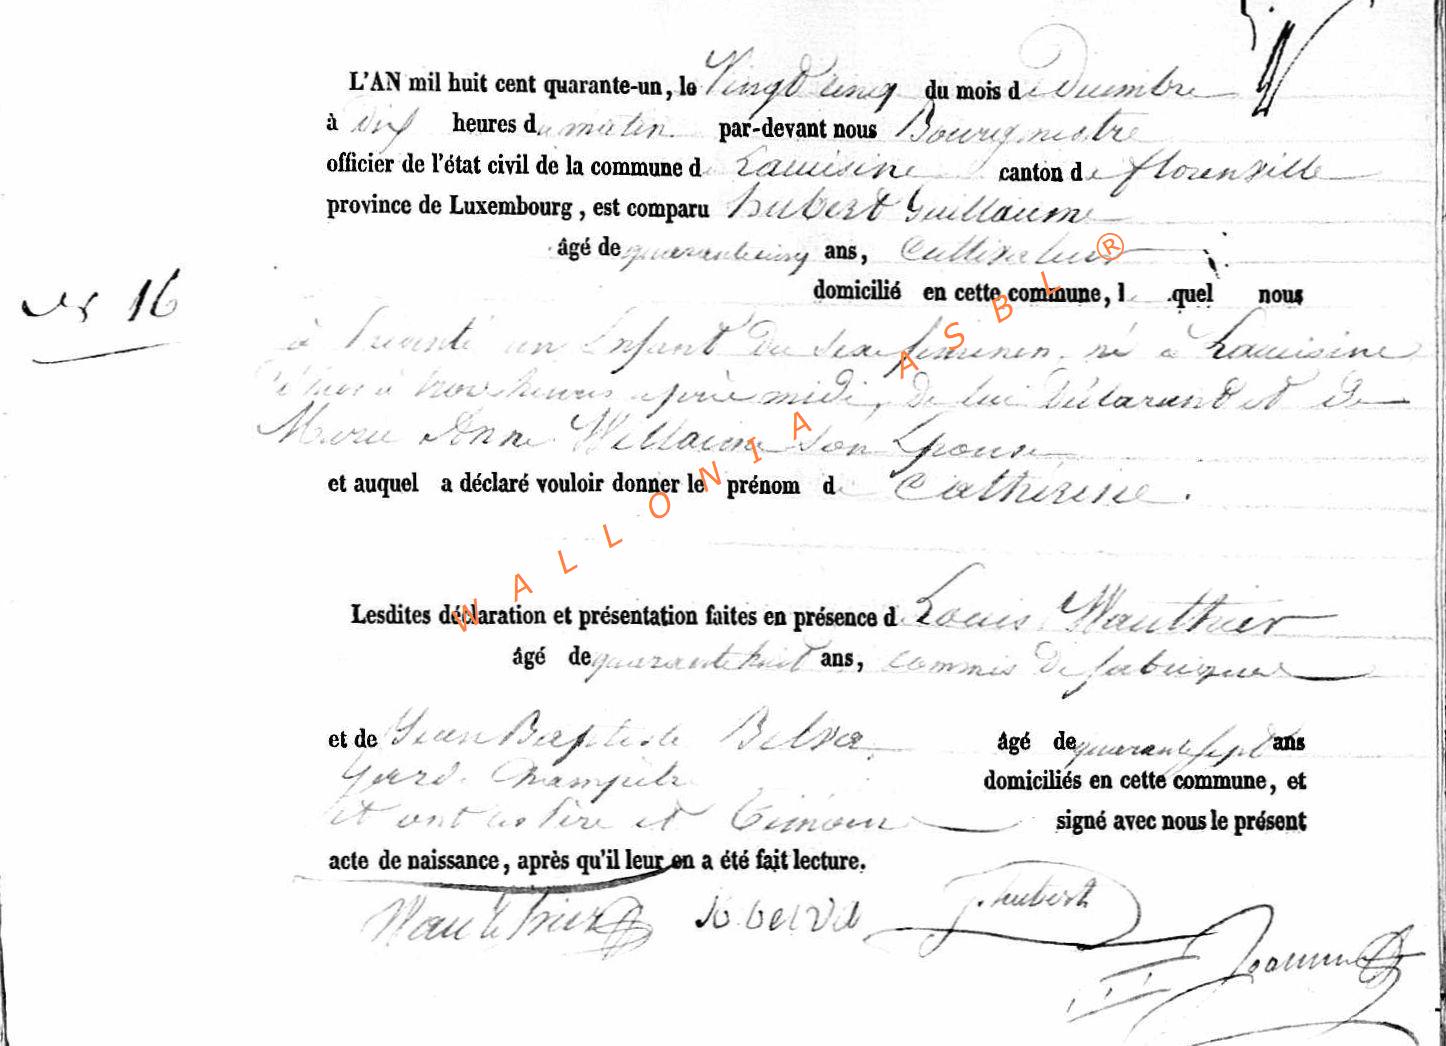 L'AN mil huit cent quarante-un, le Vingt cinq du mois de Decembre
à Dix heures du matin. par-devant nous Bourgmestre
officier de l'état civil de la commune de Lacuisine canton de florenville
province de Luxembourg, est comparu hubert Guillaume
âgé de quarante cinq ans, Cultivateur
domicilié en cette commune, l quel nous
No 16
à présenté un Enfant du sexe feminen, né a Lacuisine
hier à trois heures après midi, de lui Déclarant et De
Marie Anne Willaime son Epouse
et auquel a déclaré vouloir donner le prénom de Catherine.
Lesdites déclaration et présentation faites en présence de Louis Wauthier
âgé de quarante huit ans, commis de fabrique
et de Jean Baptiste Belva âgé de quarante sept ans
garde Champetre domiciliés en cette commune, et
et ont les Père et Témoin signé avec nous le présent
acte de naissance, après qu'il leur en a été fait lecture.
Wauthier JB belva J. hubert
WALLONIA ASBL ®